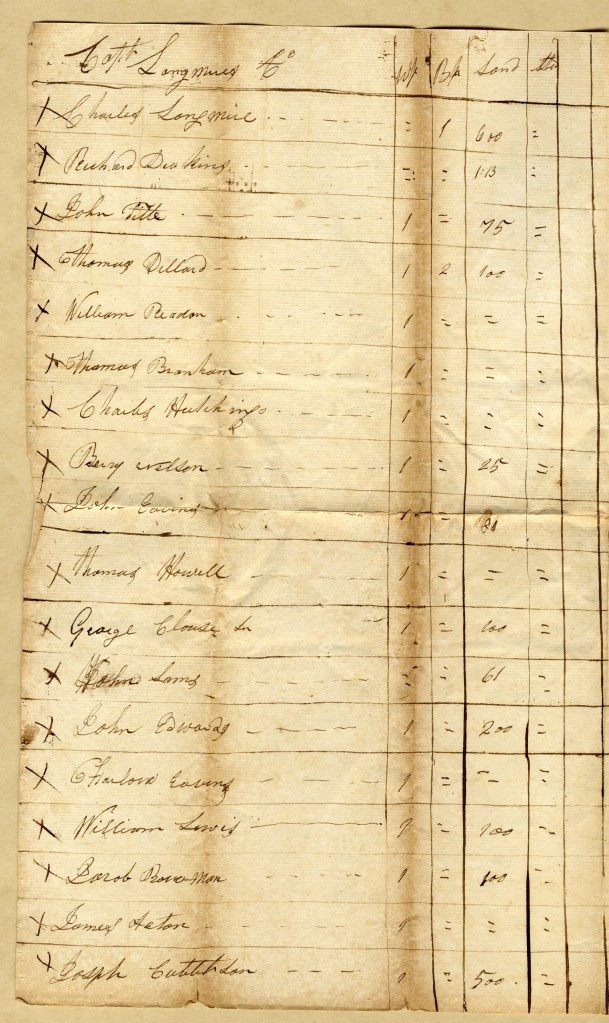 Capt Longmires Co W/p B/p Land
X Charles Longmire = 1 600 =
X Richard Deakins = = 113 =
X John Titte 1 = 75 =
X Thomas Dillard 1 2 100 =
X William Readon 1 = = =
X Thomas Branham 1 = = =
X Charles Hutchings 1 = = =
X Berry Nelson 1 = 25 =
X John Eavins 1 =
X Thomas Howell 1 = = =
X George Clouse Sr 1 = 100 =
X Sams = = 61 =
X John Edwards 1 = 200 =
X Eavins 1 = = =
X William Lewis 1 = 100 =
X Jacob Bowman 1 = 100 =
X James Acton 1 = = =
X Joseph 1 = 500 =